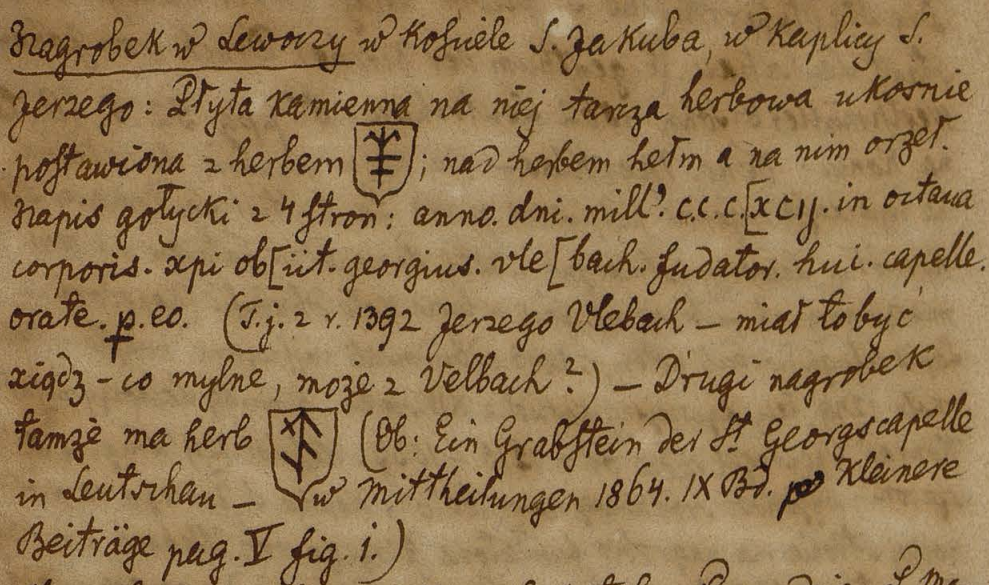 Nagrobek w Lewoczy w Kośćiele S. Jakuba, w Kaplicy S.
Jerzego: Płyta kamienna na niej tarza herbowa ukośnie
postawiona z herbem ; nad herbem hełm a na nim orzeł.
Napis gotycki z 4 stron: anno. dni. mill? c.c.c.[xcij. in octava
corporis. xpi ob[iit. georgius. vle[bach. fudator. hui. capelle.
orate. p. eo. (T.j. z r. 1392 Jerzego Vlebach – miał to być
xiądz – co mylne, może z Velbach?) – Drugi nagrobek
tamże ma herb (Ob: Ein Grabstein der St Georgscapelle
in Leutschau – w Mittheilungen 1864. IX Bd. Kleinere
Beiträge pag. V fig. 1.)